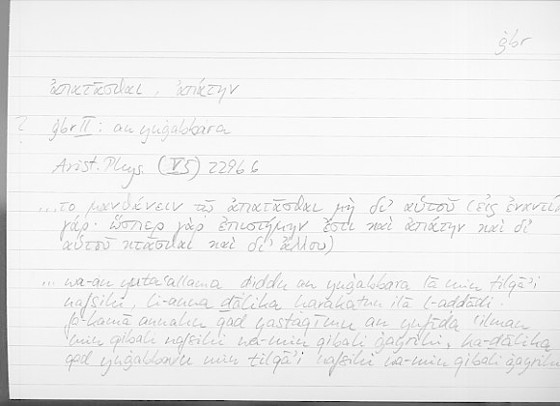 ġbr
ἀπατᾶσθαι, ἀπάτην
? ġbr II: an yuġabbara
Arist. Phys. (V5) 229b6
...το μανθάνειν τῷ ἀπατᾶσθαι μὴ δι' αὑτοῦ (εἰς ἐναντί
γάρ· ὥσπερ γὰρ ἐπιστήμην ἔστι καὶ ἀπάτην καὶ δι'
αὑτοῦ κτᾶσθαι καὶ δι' ἄλλου)
... wa-an yutaʿallama ḍiddu an yuġabbara lā min tilqāʾi
nafsihi, li-anna ḏālika ḥarakatun ilā l-aḍdādi.
fa-kamā annahu qad yastaqīmu an yufīda ʿilman
min qibali nafsihi wa-min qibali ġayrihi, ka-ḏālika
qad yuġabbaru min tilqāʾi nafsihi wa-min qibali ġayrihi